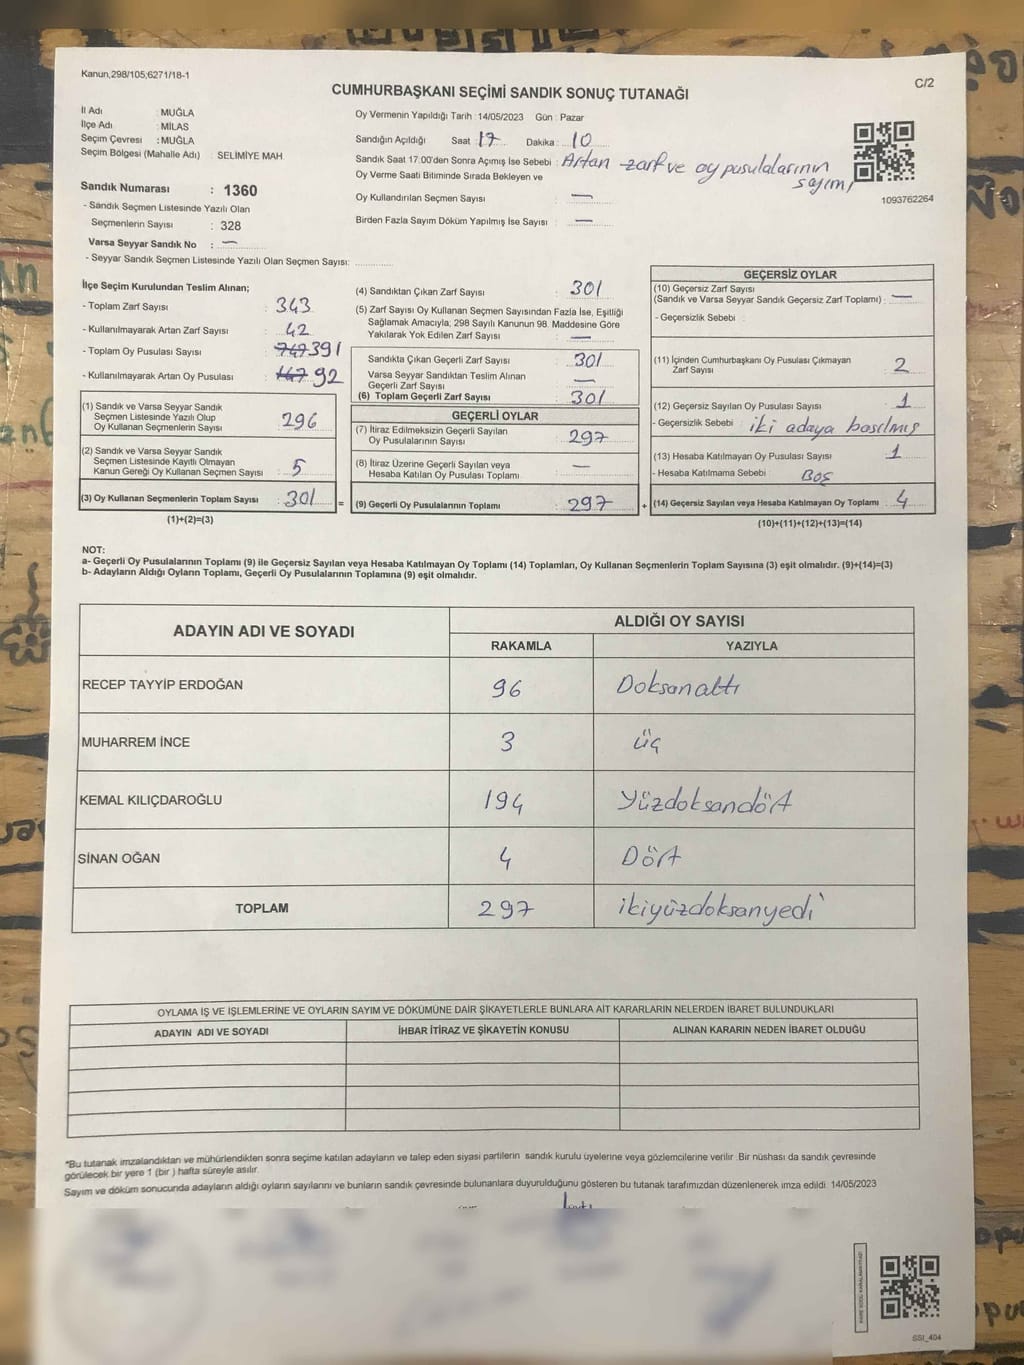 Kanun,298/105;6271/18-1
C/2
CUMHURBAŞKANI SEÇİMİ SANDIK SONUÇ TUTANAĞI
İl Adı : MUĞLA
İlçe Adı : MİLAS
Seçim Çevresi : MUĞLA
Seçim Bölgesi (Mahalle Adı) : SELİMİYE MAH
Sandık Numarası : 1360
- Sandık Seçmen Listesinde Yazılı Olan
Seçmenlerin Sayısı : 328
Varsa Seyyar Sandık No : —
- Seyyar Sandık Seçmen Listesinde Yazılı Olan Seçmen Sayısı:
Oy Vermenin Yapıldığı Tarih : 14/05/2023 Gün : Pazar
Sandığın Açıldığı Saat 17 Dakika : 10
Sandık Saat 17:00'den Sonra Açımış İse Sebebi : Artan zarf ve oy pusulalarının
sayımı
Oy Verme Saati Bitiminde Sırada Bekleyen ve
Oy Kullandırılan Seçmen Sayısı : —
Birden Fazla Sayım Döküm Yapılmış İse Sayısı : —
1093762264
İlçe Seçim Kurulundan Teslim Alınan;
- Toplam Zarf Sayısı : 343
- Kullanılmayarak Artan Zarf Sayısı : 42
- Toplam Oy Pusulası Sayısı : 747 391
- Kullanılmayarak Artan Oy Pusulası : 447 92
(1) Sandık ve Varsa Seyyar Sandık
Seçmen Listesinde Yazılı Olup
Oy Kullanan Seçmenlerin Sayısı : 296
(2) Sandık ve Varsa Seyyar Sandık
Seçmen Listesinde Kayıtlı Olmayan
Kanun Gereği Oy Kullanan Seçmen Sayısı : 5
(3) Oy Kullanan Seçmenlerin Toplam Sayısı : 301 =
(1)+(2)=(3)
(4) Sandıktan Çıkan Zarf Sayısı : 301
(5) Zarf Sayısı Oy Kullanan Seçmen Sayısından Fazla İse, Eşitliği
Sağlamak Amacıyla, 298 Sayılı Kanunun 98. Maddesine Göre
Yakılarak Yok Edilen Zarf Sayısı : —
Sandıkta Çıkan Geçerli Zarf Sayısı : 301
Varsa Seyyar Sandıktan Teslim Alınan
Geçerli Zarf Sayısı : —
(6) Toplam Geçerli Zarf Sayısı : 301
GEÇERLİ OYLAR
(7) İtiraz Edilmeksizin Geçerli Sayılan
Oy Pusulalarının Sayısı : 297
(8) İtiraz Üzerine Geçerli Sayılan veya
Hesaba Katılan Oy Pusulası Toplamı : —
(9) Geçerli Oy Pusulalarının Toplamı : 297 +
GEÇERSİZ OYLAR
(10) Geçersiz Zarf Sayısı
(Sandık ve Varsa Seyyar Sandık Geçersiz Zarf Toplamı) : —
- Geçersizlik Sebebi :
(11) İçinden Cumhurbaşkanı Oy Pusulası Çıkmayan
Zarf Sayısı : 2
(12) Geçersiz Sayılan Oy Pusulası Sayısı : 1
- Geçersizlik Sebebi : iki adaya basılmış
(13) Hesaba Katılmayan Oy Pusulası Sayısı : 1
- Hesaba Katılmama Sebebi : Boş
(14) Geçersiz Sayılan veya Hesaba Katılmayan Oy Toplamı : 4
(10)+(11)+(12)+(13)=(14)
NOT:
a- Geçerli Oy Pusulalarının Toplamı (9) ile Geçersiz Sayılan veya Hesaba Katılmayan Oy Toplamı (14) Toplamları, Oy Kullanan Seçmenlerin Toplam Sayısına (3) eşit olmalıdır. (9)+(14)=(3)
b- Adayların Aldığı Oyların Toplamı, Geçerli Oy Pusulalarının Toplamına (9) eşit olmalıdır.
ADAYIN ADI VE SOYADI ALDIĞI OY SAYISI
RAKAMLA YAZIYLA
RECEP TAYYİP ERDOĞAN 96 Doksanaltı
MUHARREM İNCE 3 üç
KEMAL KILIÇDAROĞLU 194 Yüzdoksandört
SİNAN OĞAN 4 Dört
TOPLAM 297 ikiyüzdoksanyedi
OYLAMA İŞ VE İŞLEMLERİNE VE OYLARIN SAYIM VE DÖKÜMÜNE DAİR ŞİKAYETLERLE BUNLARA AİT KARARLARIN NELERDEN İBARET BULUNDUKLARI
ADAYIN ADI VE SOYADI İHBAR İTİRAZ VE ŞİKAYETİN KONUSU ALINAN KARARIN NEDEN İBARET OLDUĞU
*Bu tutanak imzalandıktan ve mühürlendikten sonra seçime katılan adayların ve talep eden siyasi partilerin sandık kurulu üyelerine veya gözlemcilerine verilir .Bir nüshası da sandık çevresinde
görülecek bir yere 1 (bir ) hafta süreyle asılır.
Sayım ve döküm sonucunda adayların aldığı oyların sayılarını ve bunların sandık çevresinde bulunanlara duyurulduğunu gösteren bu tutanak tarafımızdan düzenlenerek imza edildi. 14/05/2023
KARE KODU KARALAMAYINIZ!
SSI_404